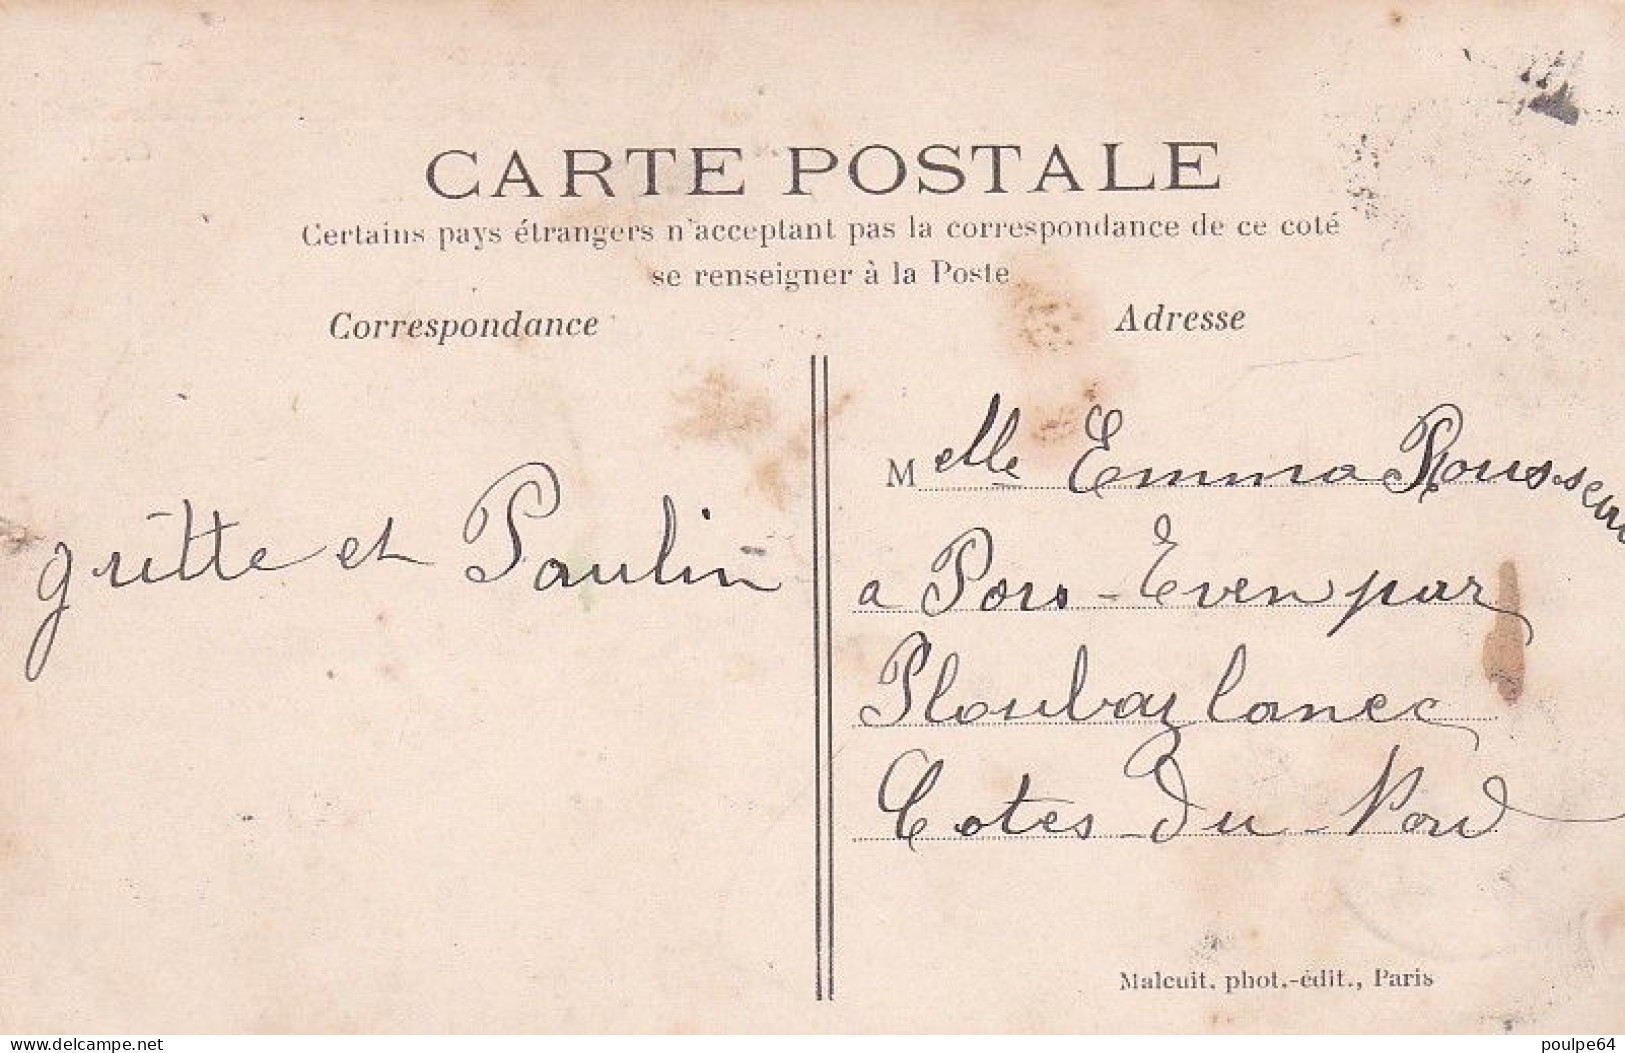 CARTE POSTALE
Certains pays étrangers n'acceptant pas la correspondance de ce coté
se renseigner à la Poste
Correspondance
Adresse
gritte et Paulin
Melle Emma Rousseau
a Pors-Even par
Ploubazlanec
Cotes-Du-Nord
Malcuit, phot.-édit., Paris
delcampe.net
poulpe64